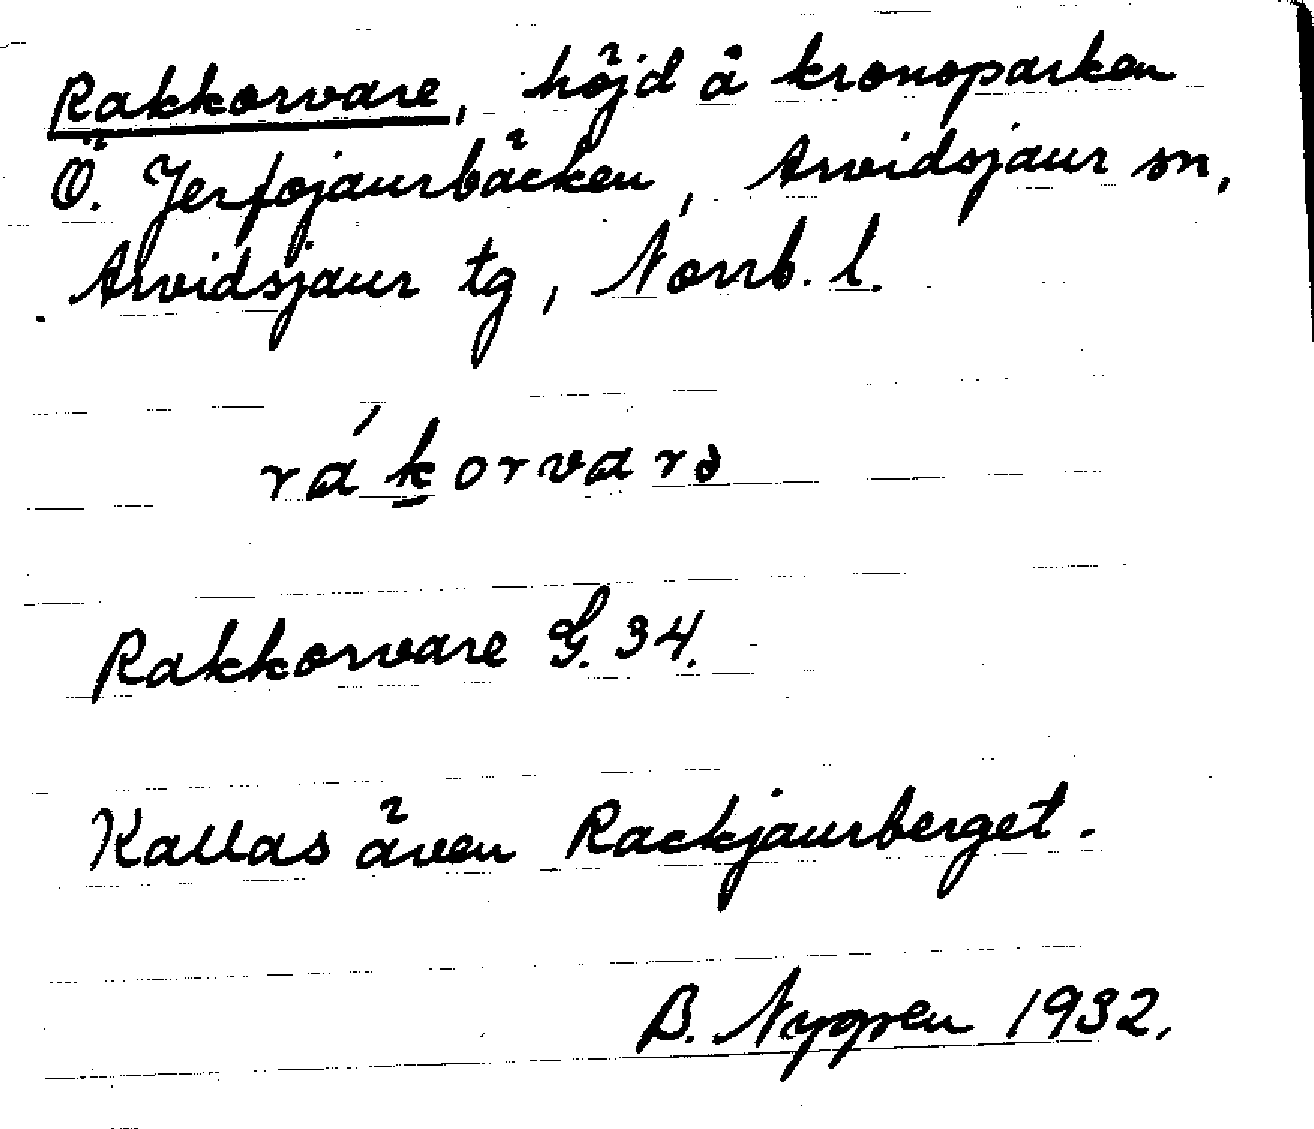 Rakkorvare, höjd å kronoparken
Ö. Jerfojaurbäcken, Arvidsjaur sn,
Arvidsjaur tg, Norrb. l.
rák̲orvarə
Rakkorvare G. 34.
Kallas även Rackjaurberget.
B. Nygren 1932.